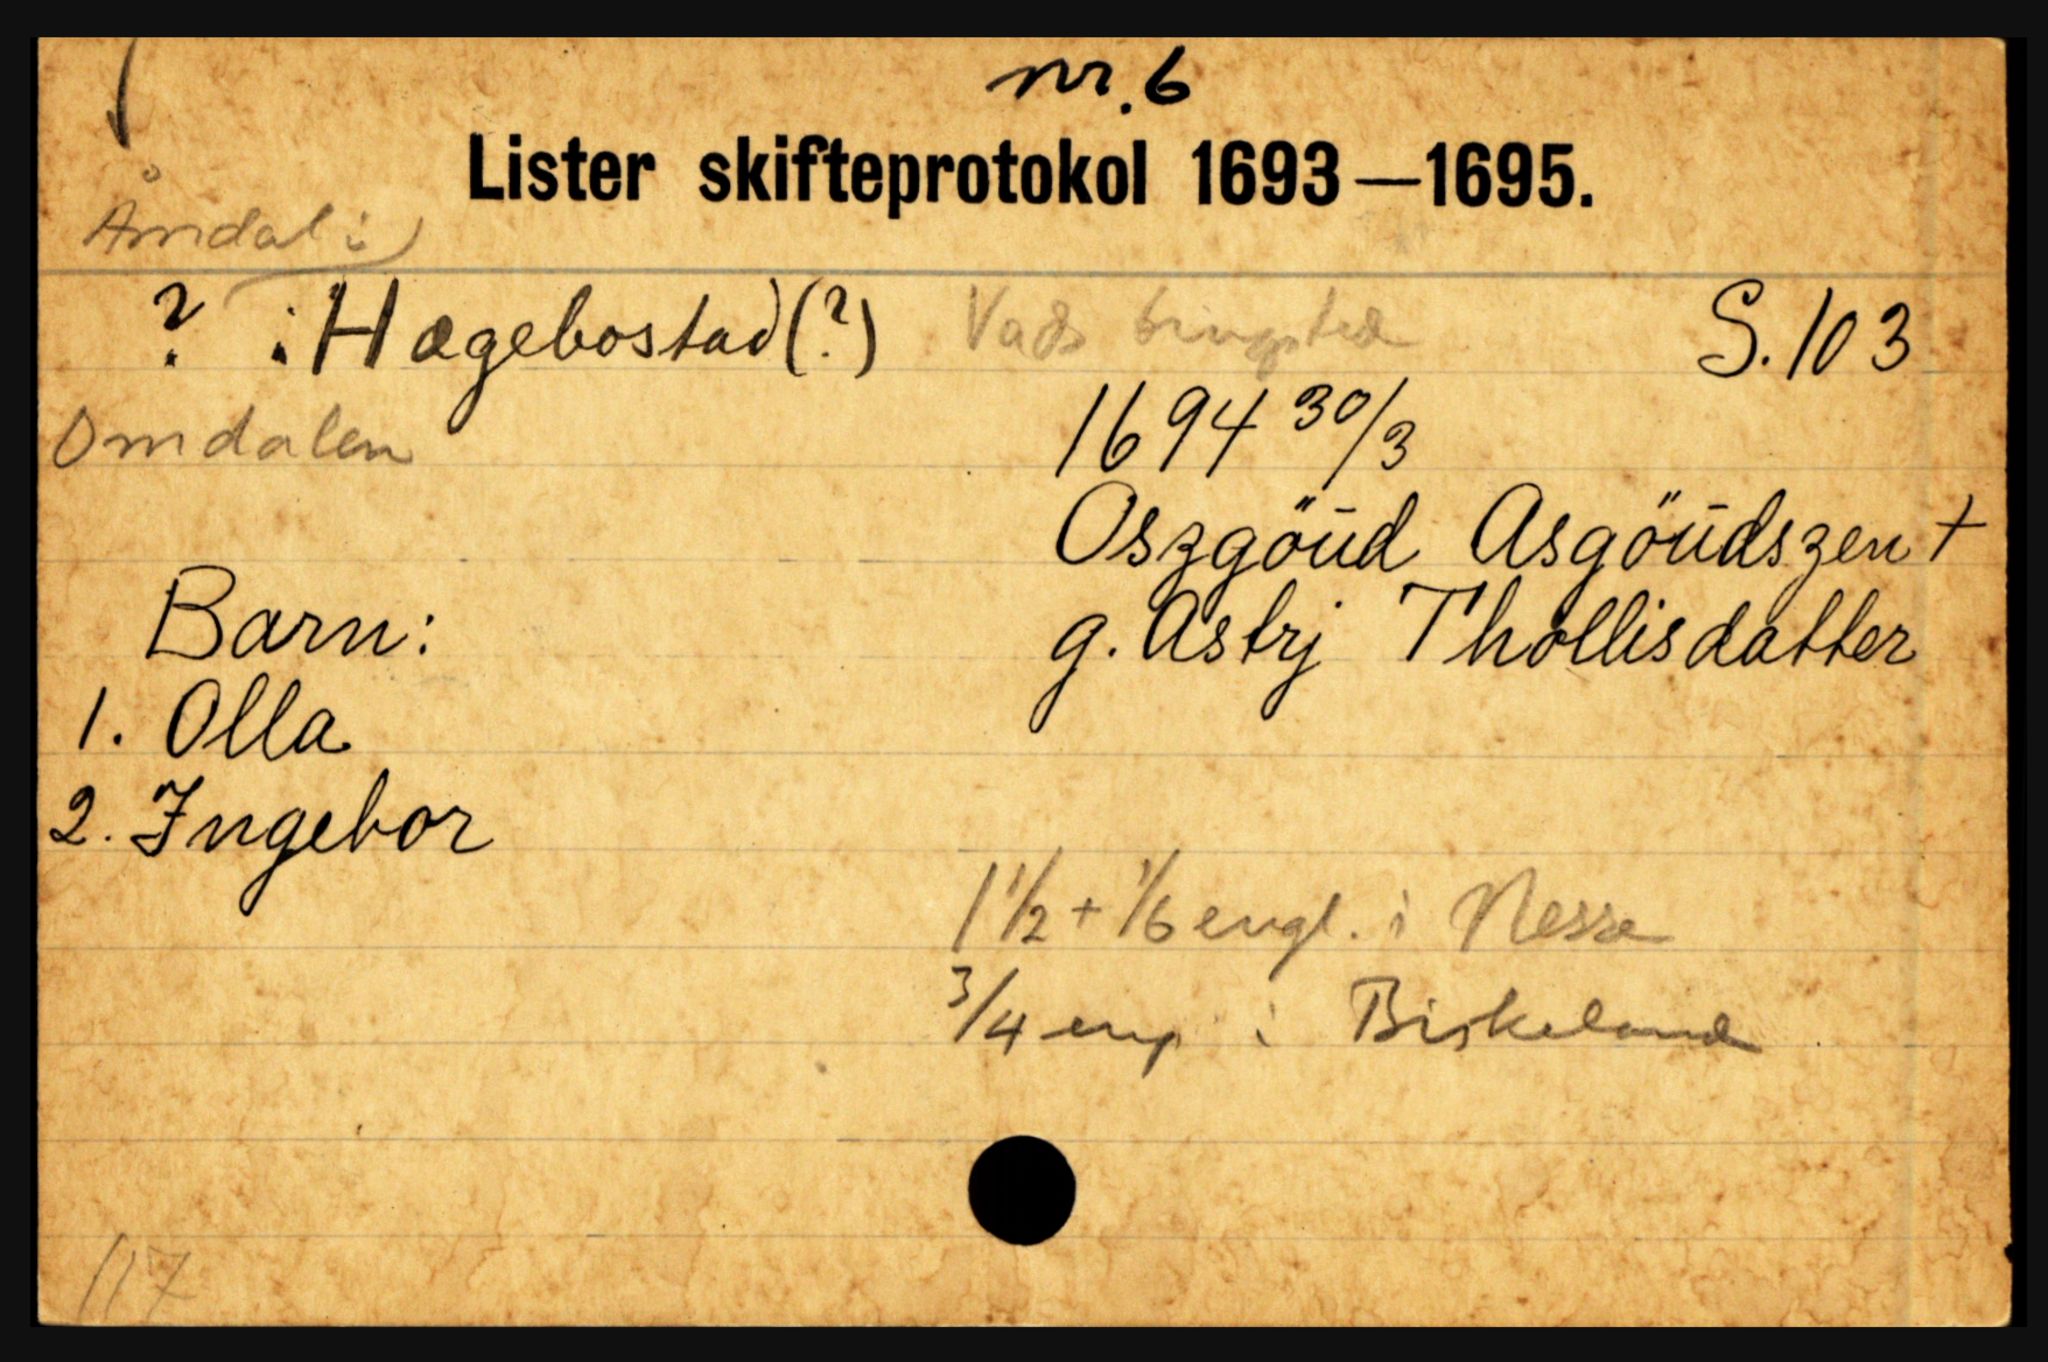 nr. 6
Lister skifteprotokol 1693—1695.
Åmdal i
? i Hægebostad (?) Vads tingsted S. 103
Omdalen
1694 30/3
Oszgöud Asgöudszen +
Barn: g. Astrj Thollisdatter
1. Olla
2. Ingebor
1 1/2 + 1/6 engl. i Nesse
3/4 eng i Birkeland
117